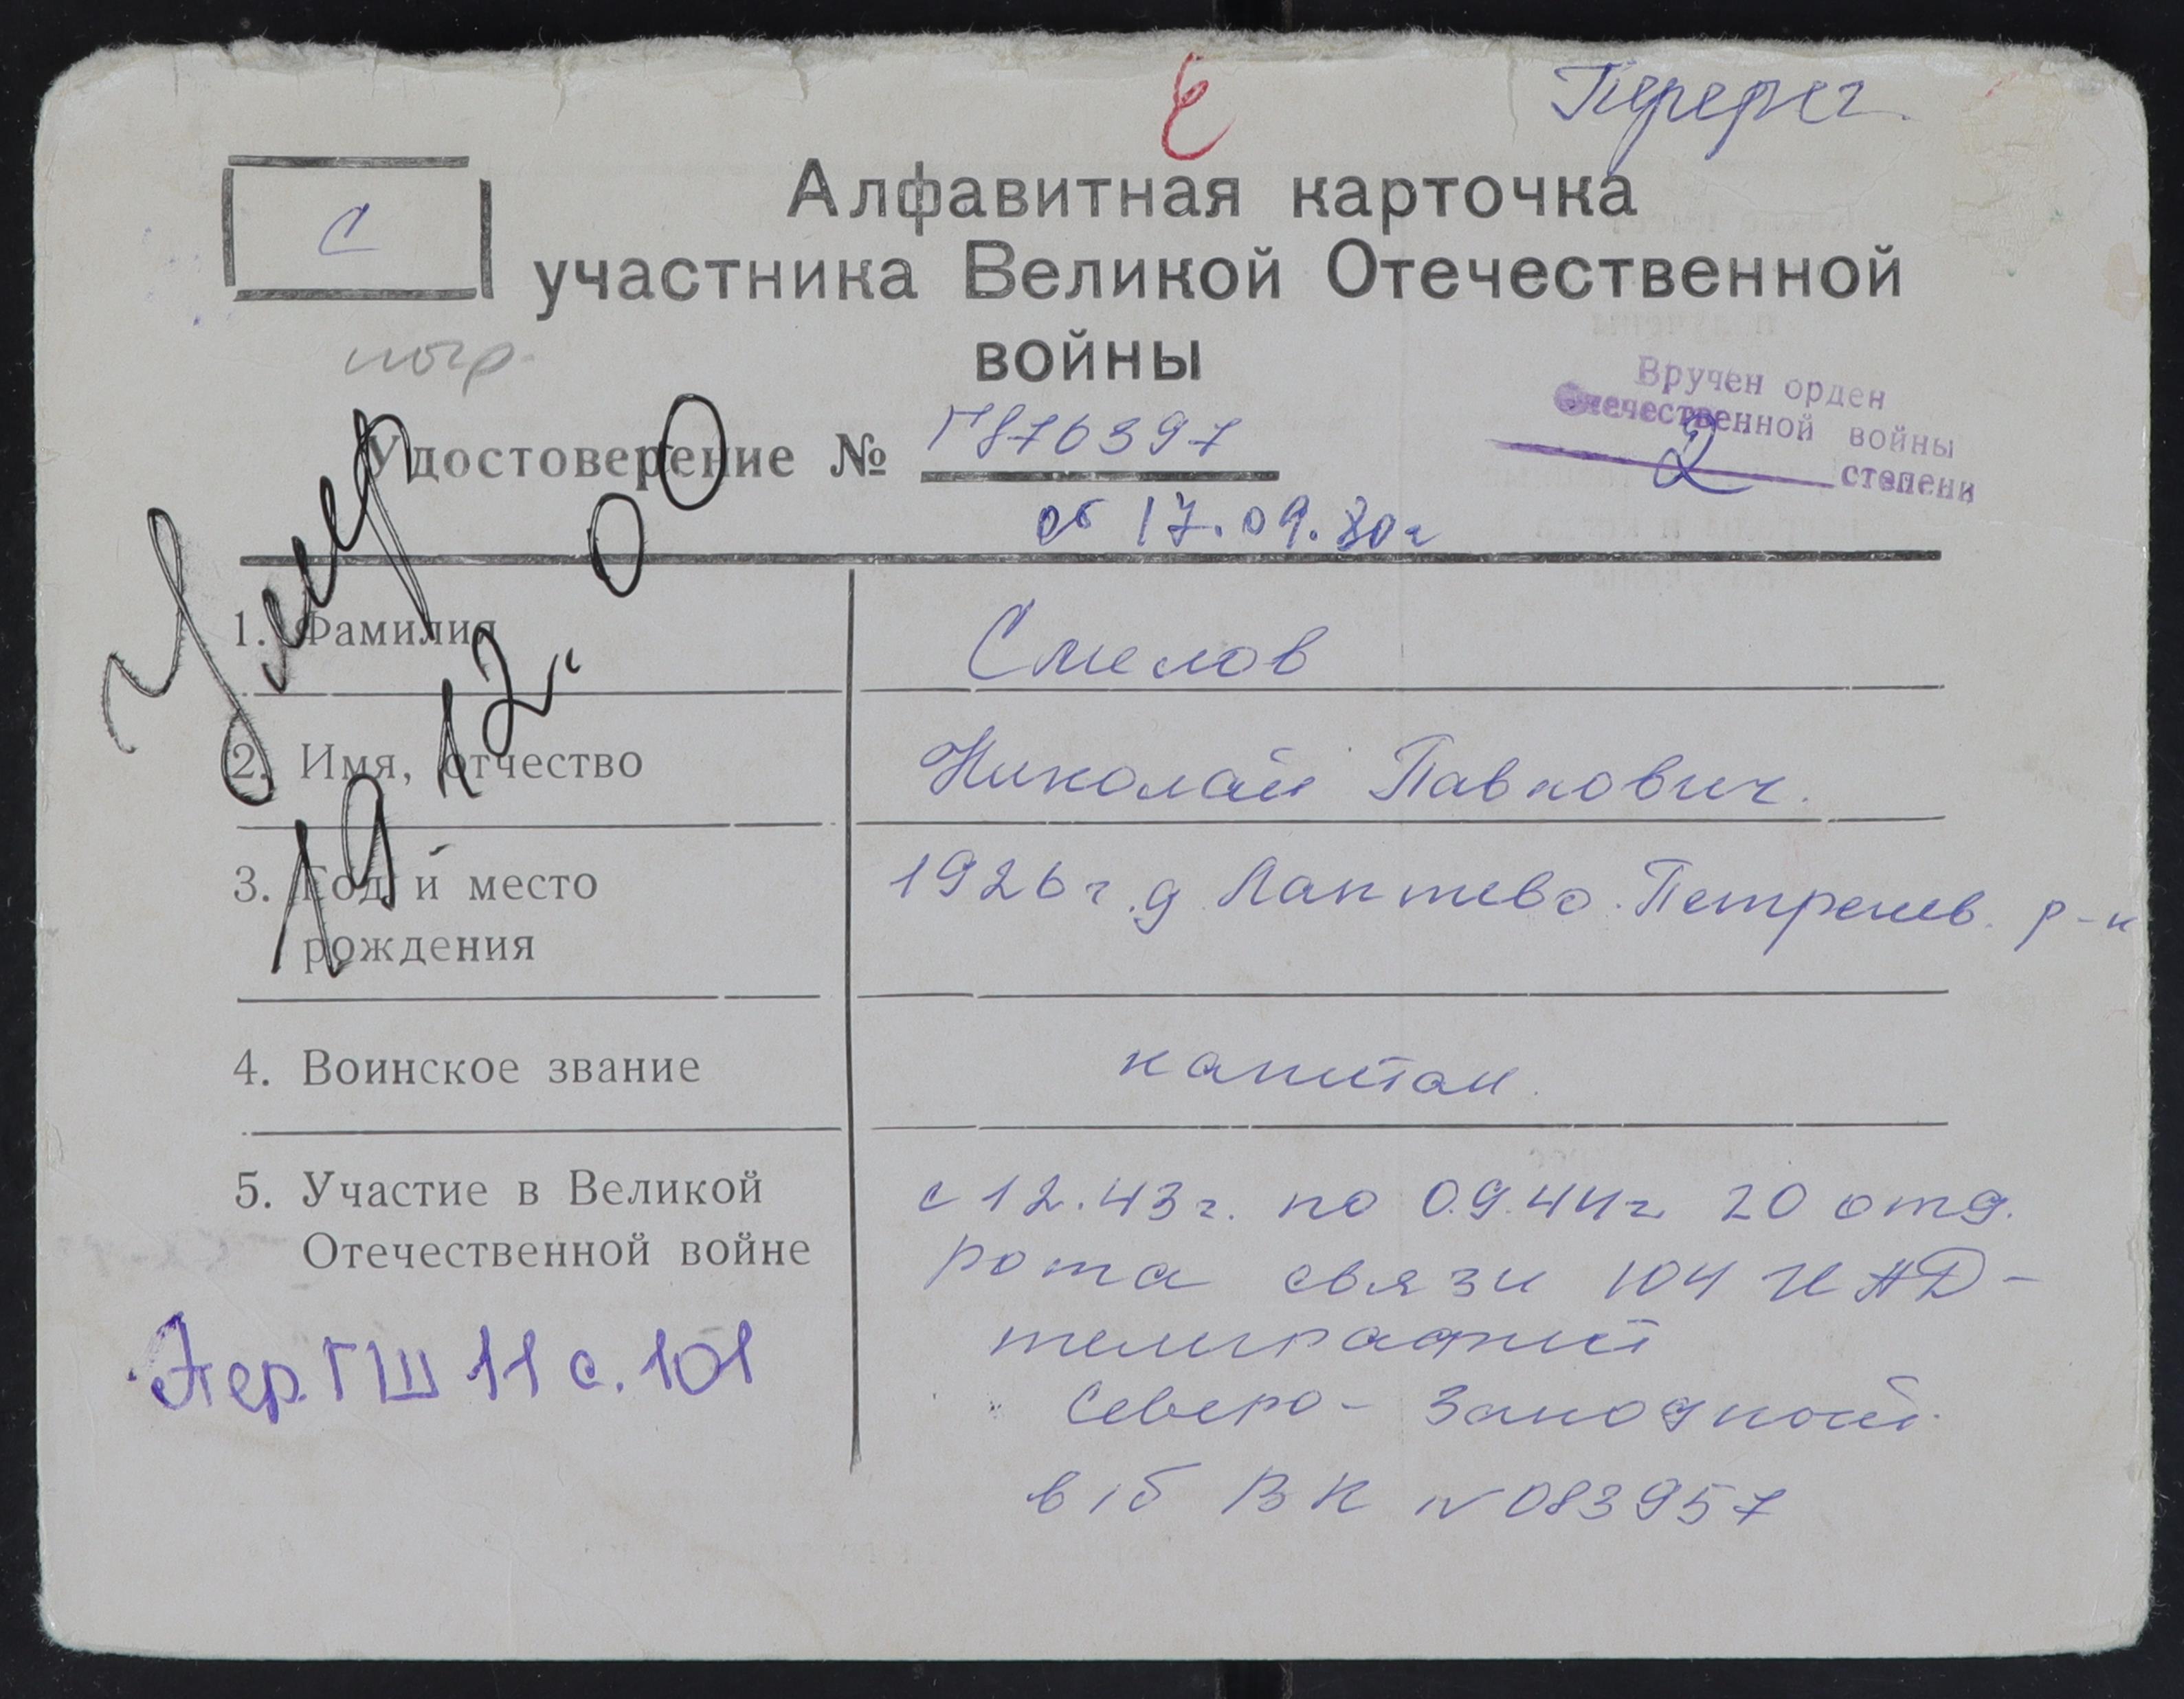 Е
Перерег.
С
Алфавитная карточка
участника Великой Отечественной
войны
погр.
Вручен орден
Отечественной войны
2 степени
Удостоверение № Г 876397
от 17.09.80г
Умер
19 12. 00
1. Фамилия Смелов
2. Имя, отчество Николай Павлович.
3. Год и место 1926 г. д Лаптево. Петренев. р-н
рождения
4. Воинское звание капитан
5. Участие в Великой с 12.43г. по 09.44г 20 отд.
Отечественной войне рота связи 104
Пер. ГШ 11 с. 101
Северо-Западной
в/б ВК N 083957